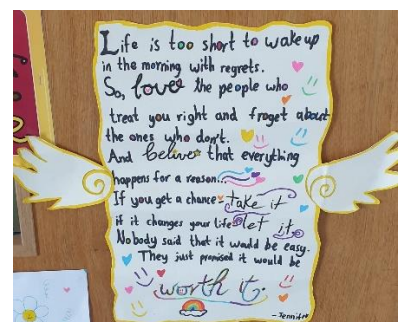 Life is too short to wake up
in the morning with regrets.
So, love the people who
treat you right and froget about
the ones who don't.
And belive that everything
happens for a reason...
If you get a chance take it
if it changes your life let it.
Nobody said that it would be easy.
They just promised it would be
worth it.